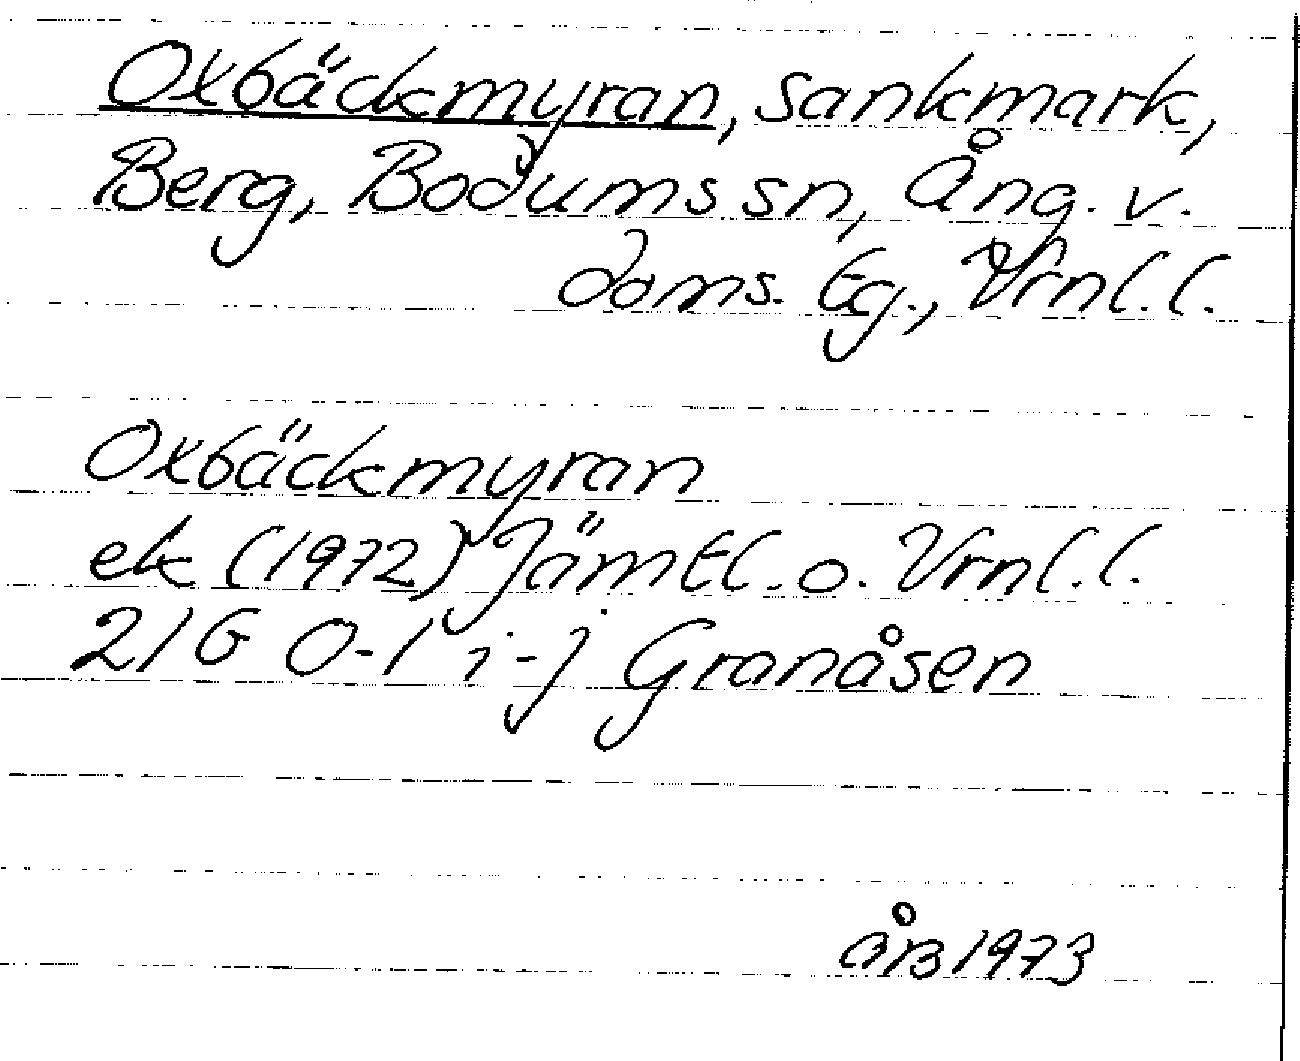 Oxbäckmyran, sankmark,
Berg, Bodums sn, Ång. v.
doms. tg., Vrnl. l.
Oxbäckmyran
ek (1972) Jämtl. o. Vrnl. l.
21G 0-1 i-j Granåsen
ÅB 1973